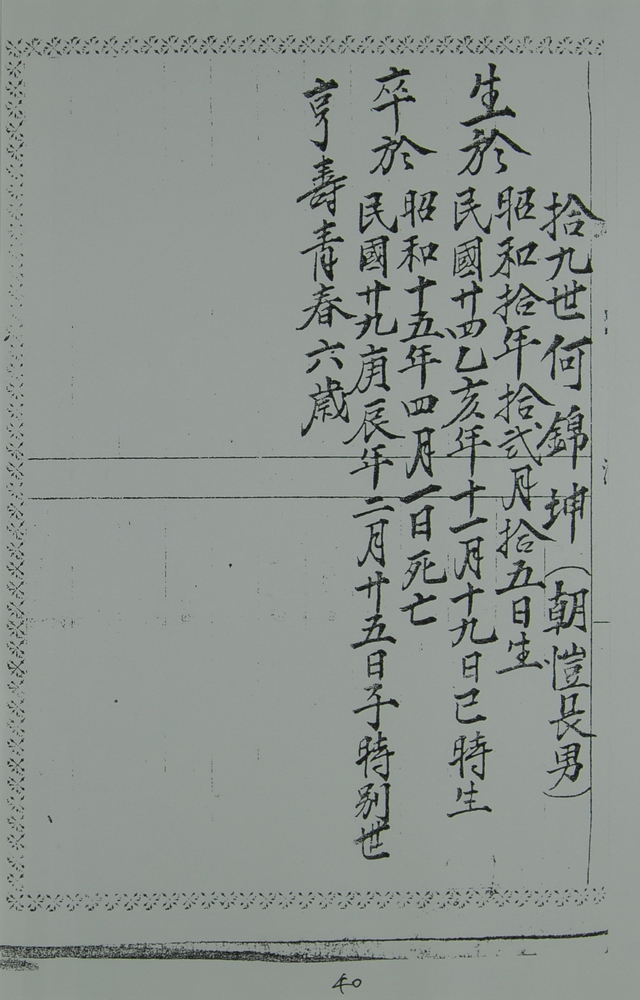 拾九世何錦坤(朝愷長男)
生於
昭和拾年拾弍月拾五日生
民國廿四乙亥年十一月十九日巳時生
卒於
昭和十五年四月一日死亡
民國廿九庚辰年二月廿五日子時別世
亨壽青春六歲
40